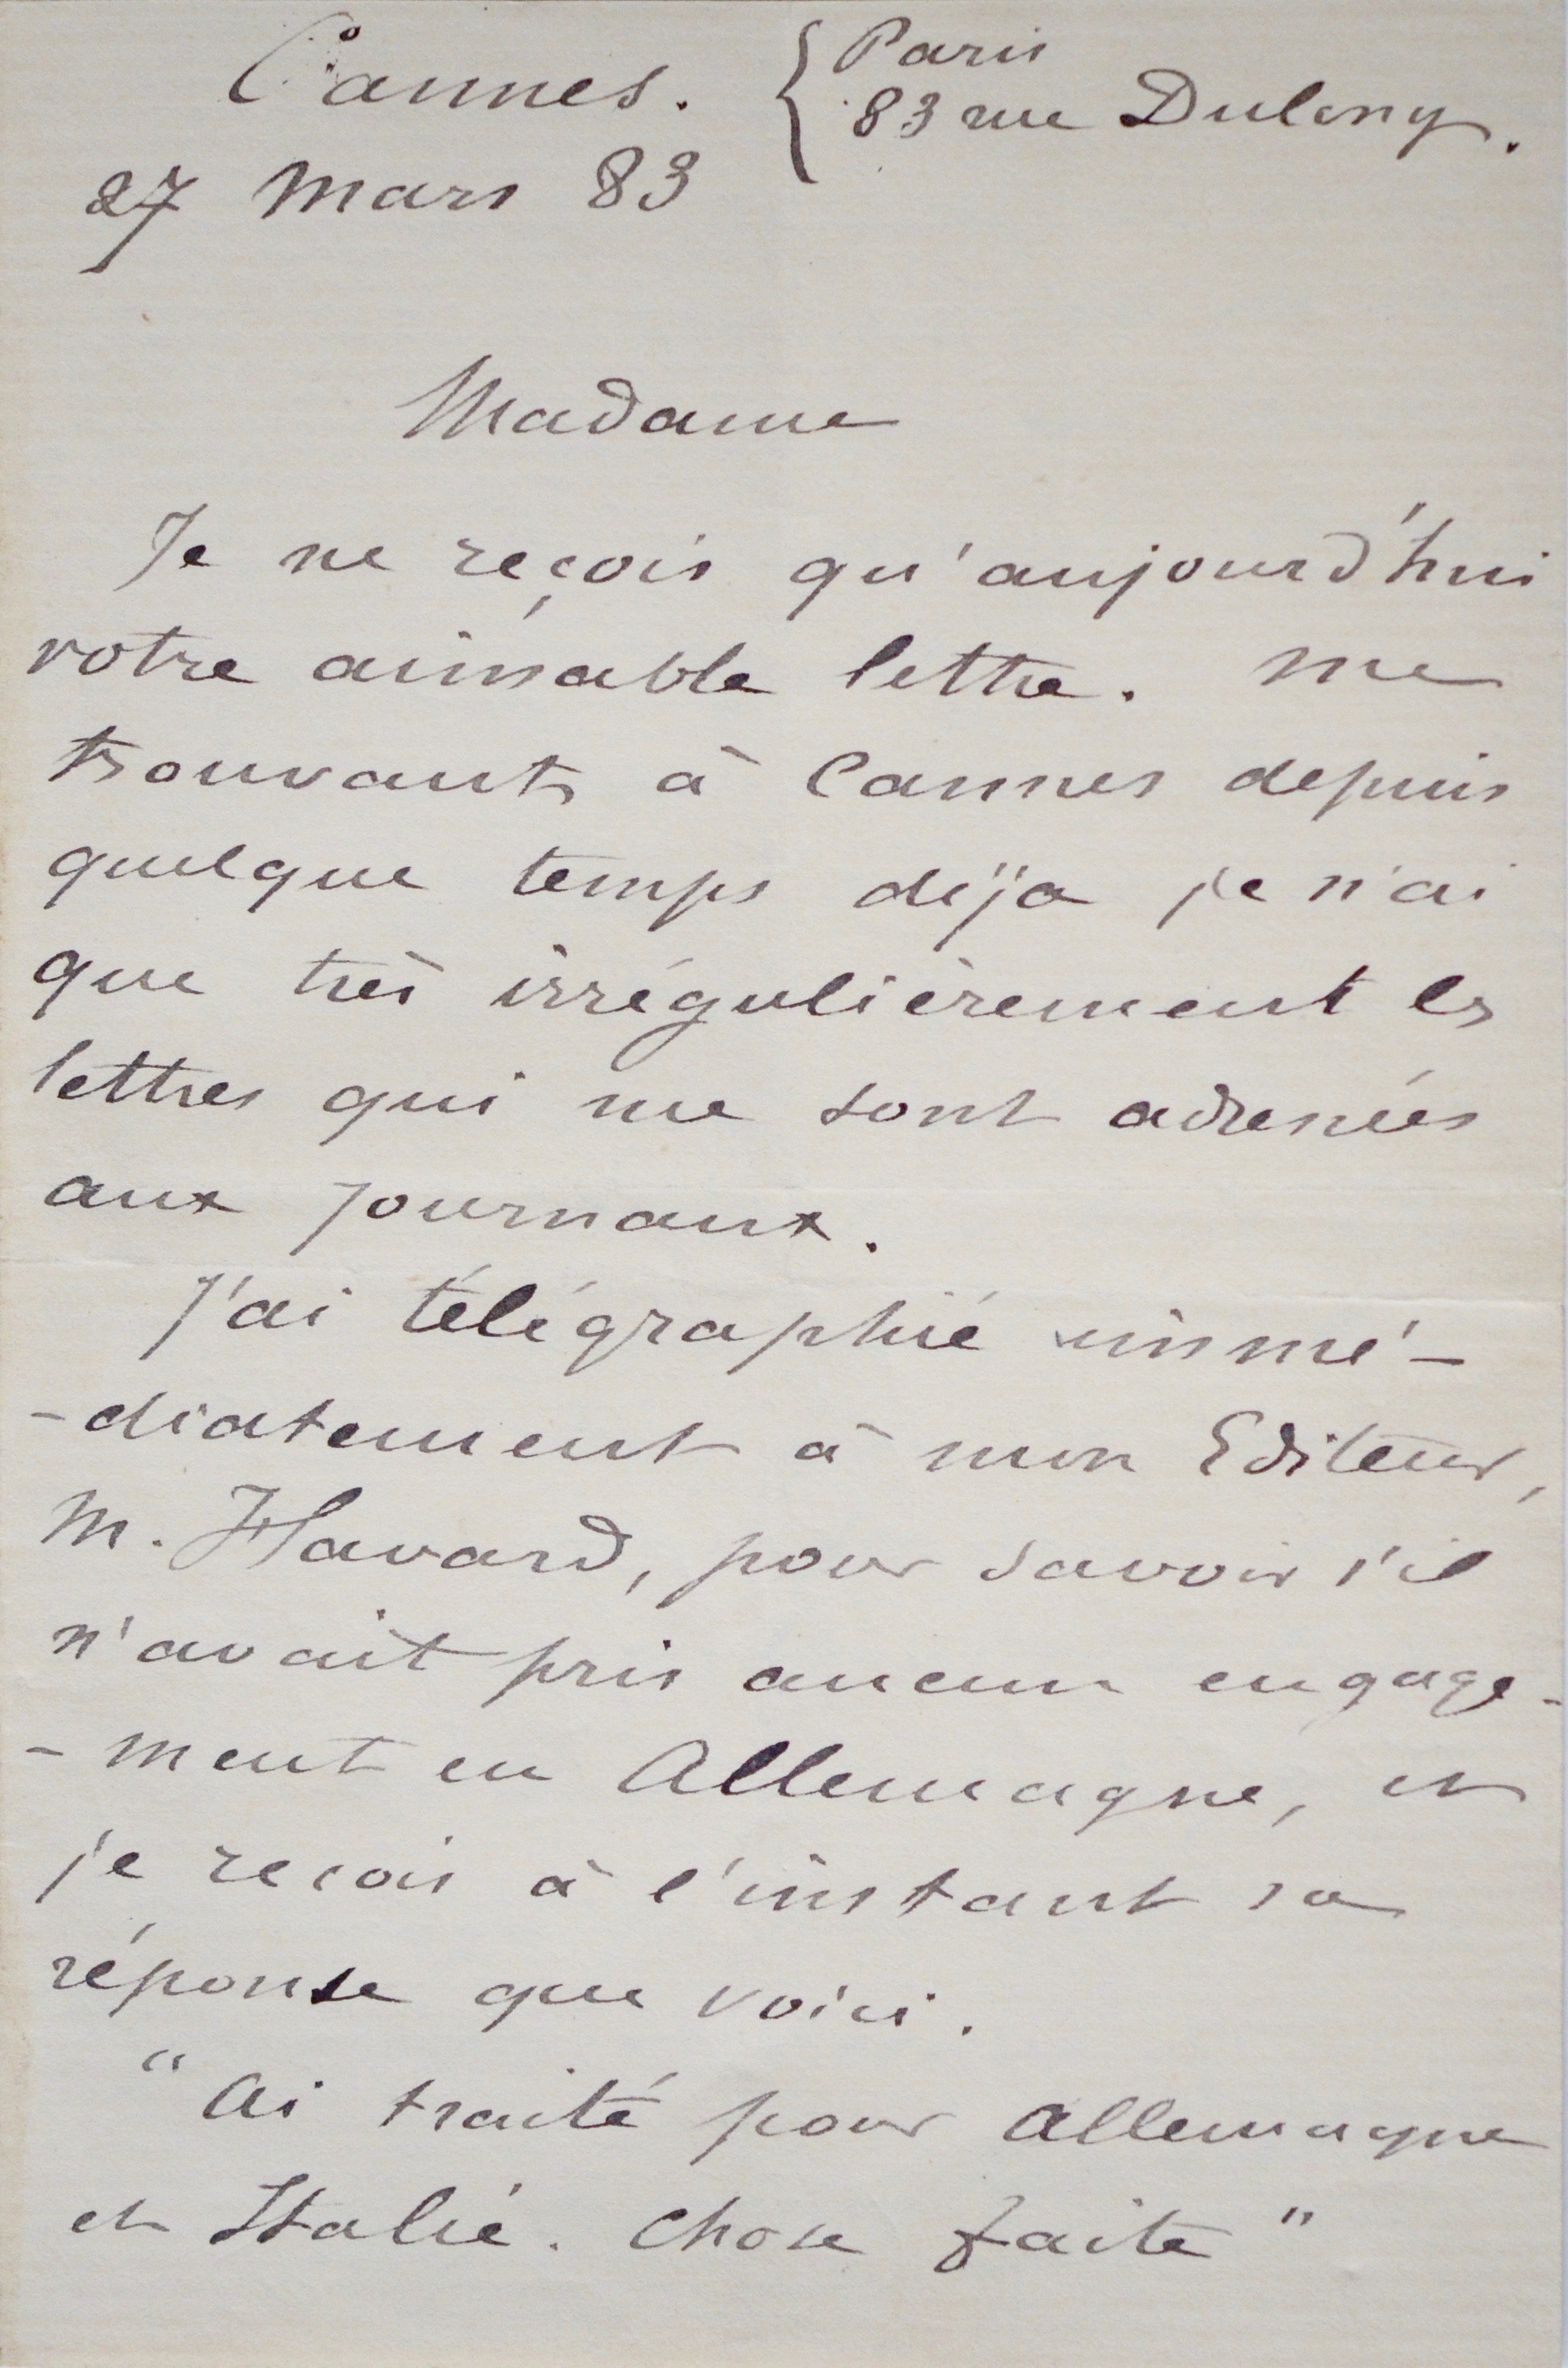 Cannes. { Paris
83 rue Dulong.
27 Mars 83
Madame
Je ne reçois qu'aujourd'hui
votre aimable lettre. Me
trouvant à Cannes depuis
quelque temps déja je n'ai
que très irrégulièrement les
lettres qui me sont adressées
aux journaux.
J'ai télégraphié immé-
-diatement à mon Editeur,
M. Havard, pour savoir s'il
n'avait pris aucun engage-
-ment en Allemagne, et
je reçois à l'instant sa
réponse que voici.
"Ai traité pour Allemagne
et Italie. Chose faite"